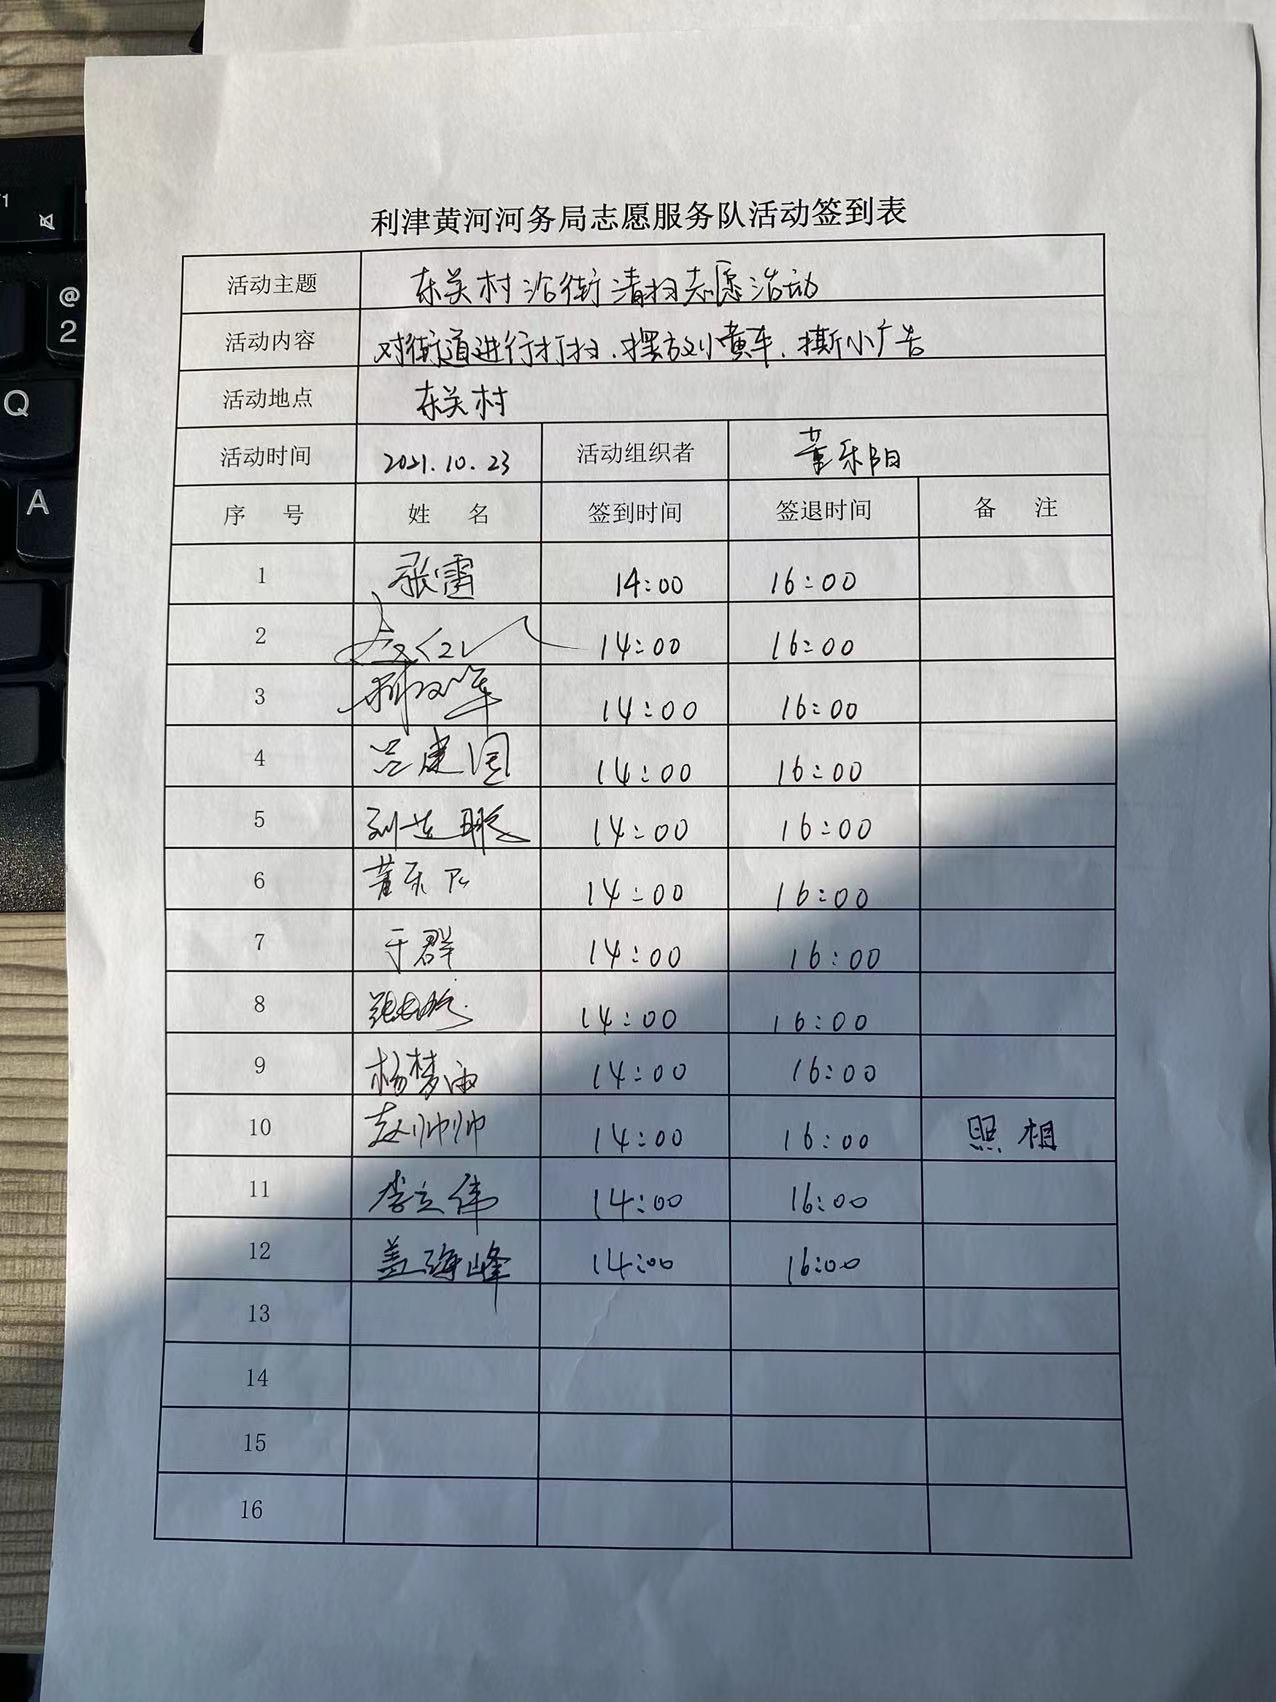 利津黄河河务局志愿服务队活动签到表
活动主题 东关村沿街清扫志愿活动
活动内容 对街道进行打扫、摆放小黄车、撕小广告
活动地点 东关村
活动时间 2021.10.23 活动组织者 董乐阳
序 号 姓 名 签到时间 签退时间 备 注
1 张雷 14:00 16:00
2 14:00 16:00
3 14:00 16:00
4 吕建国 14:00 16:00
5 刘 14:00 16:00
6 董乐阳 14:00 16:00
7 于群 14:00 16:00
8 14:00 16:00
9 杨梦雨 14:00 16:00
10 赵帅帅 14:00 16:00 照相
11 李立伟 14:00 16:00
12 盖海峰 14:00 16:00
13
14
15
16
@
2
Q
A